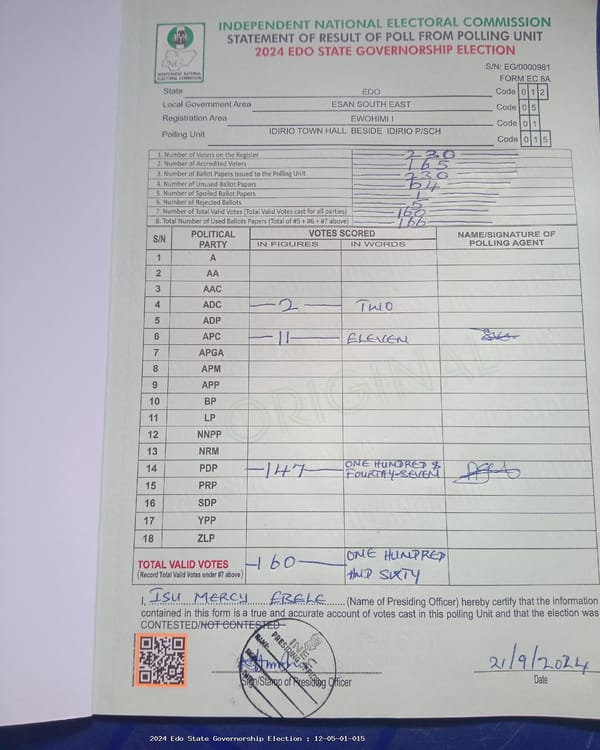 INDEPENDENT NATIONAL ELECTORAL COMMISSION
STATEMENT OF RESULT OF POLL FROM POLLING UNIT
2024 EDO STATE GOVERNORSHIP ELECTION
INEC
INDEPENDENT NATIONAL ELECTORAL COMMISSION
S/N: EG/0000981
FORM EC 8A
State EDO Code 0 1 2
Local Government Area ESAN SOUTH EAST Code 0 5
Registration Area EWOHIMI I Code 0 1
Polling Unit IDIRIO TOWN HALL BESIDE IDIRIO P/SCH Code 0 1 5
1. Number of Voters on the Register 230
2. Number of Accredited Voters 165
3. Number of Ballot Papers Issued to the Polling Unit 230
4. Number of Unused Ballot Papers 64
5. Number of Spoiled Ballot Papers 1
6. Number of Rejected Ballots 5
7. Number of Total Valid Votes (Total Valid Votes cast for all parties) 160
8. Total Number of Used Ballots Papers (Total of #5 + #6 + #7 above) 166
S/N POLITICAL PARTY VOTES SCORED NAME/SIGNATURE OF POLLING AGENT
IN FIGURES IN WORDS
1 A
2 AA
3 AAC
4 ADC 2 TWO
5 ADP
6 APC 11 ELEVEN
7 APGA
8 APM
9 APP
10 BP
11 LP
12 NNPP
13 NRM
14 PDP 147 ONE HUNDRED & FOURTAY-SEVEN
15 PRP
16 SDP
17 YPP
18 ZLP
ORIGINAL
TOTAL VALID VOTES 160 ONE HUNDRED AND SIXTY
(Record Total Valid Votes under #7 above)
I, ISU MERCY EBELE (Name of Presiding Officer) hereby certify that the information
contained in this form is a true and accurate account of votes cast in this polling Unit and that the election was
CONTESTED/NOT CONTESTED
INEC
PRESIDING OFFICER
NAME:
21/9/2024
Sign/Stamp of Presiding Officer Date
2024 Edo State Governorship Election : 12-05-01-015